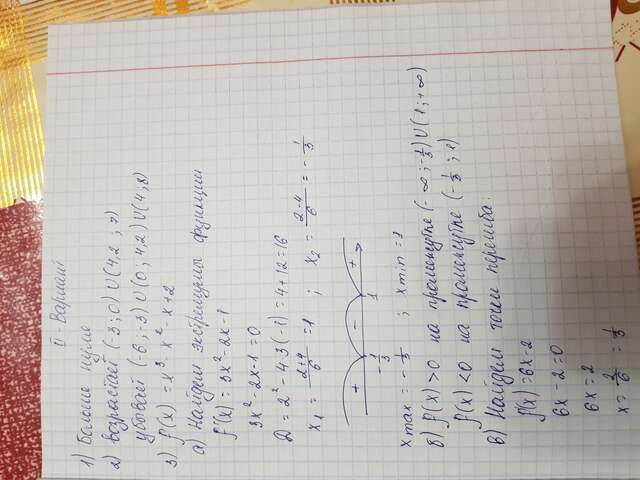 II - Вариант
1) Больше нуля
2) возрастает (-3;0) U (4,2 ; 7)
убывает (-6;-3) U (0; 4,2) U (4;8)
3) f(x) = x³- x²- x+2
а) Найдем экстремумы функции
f'(x) = 3x²-2x-1
3x²-2x-1=0
D = 2²-4·3(-1)=4+12=16
x₁ = (2+4)/6 = 1 ; x₂ = (2-4)/6 = -1/3
+ - +
-1/3 1
x max = -1/3 ; x min = 1
б) f(x) >0 на промежутке (-∞ ; -1/3) U (1;+∞)
f(x) <0 на промежутке (-1/3 ; 1)
в) Найдем точки перегиба.
f(x) = 6x-2
6x-2=0
6x=2
x = 2/6 = 1/3